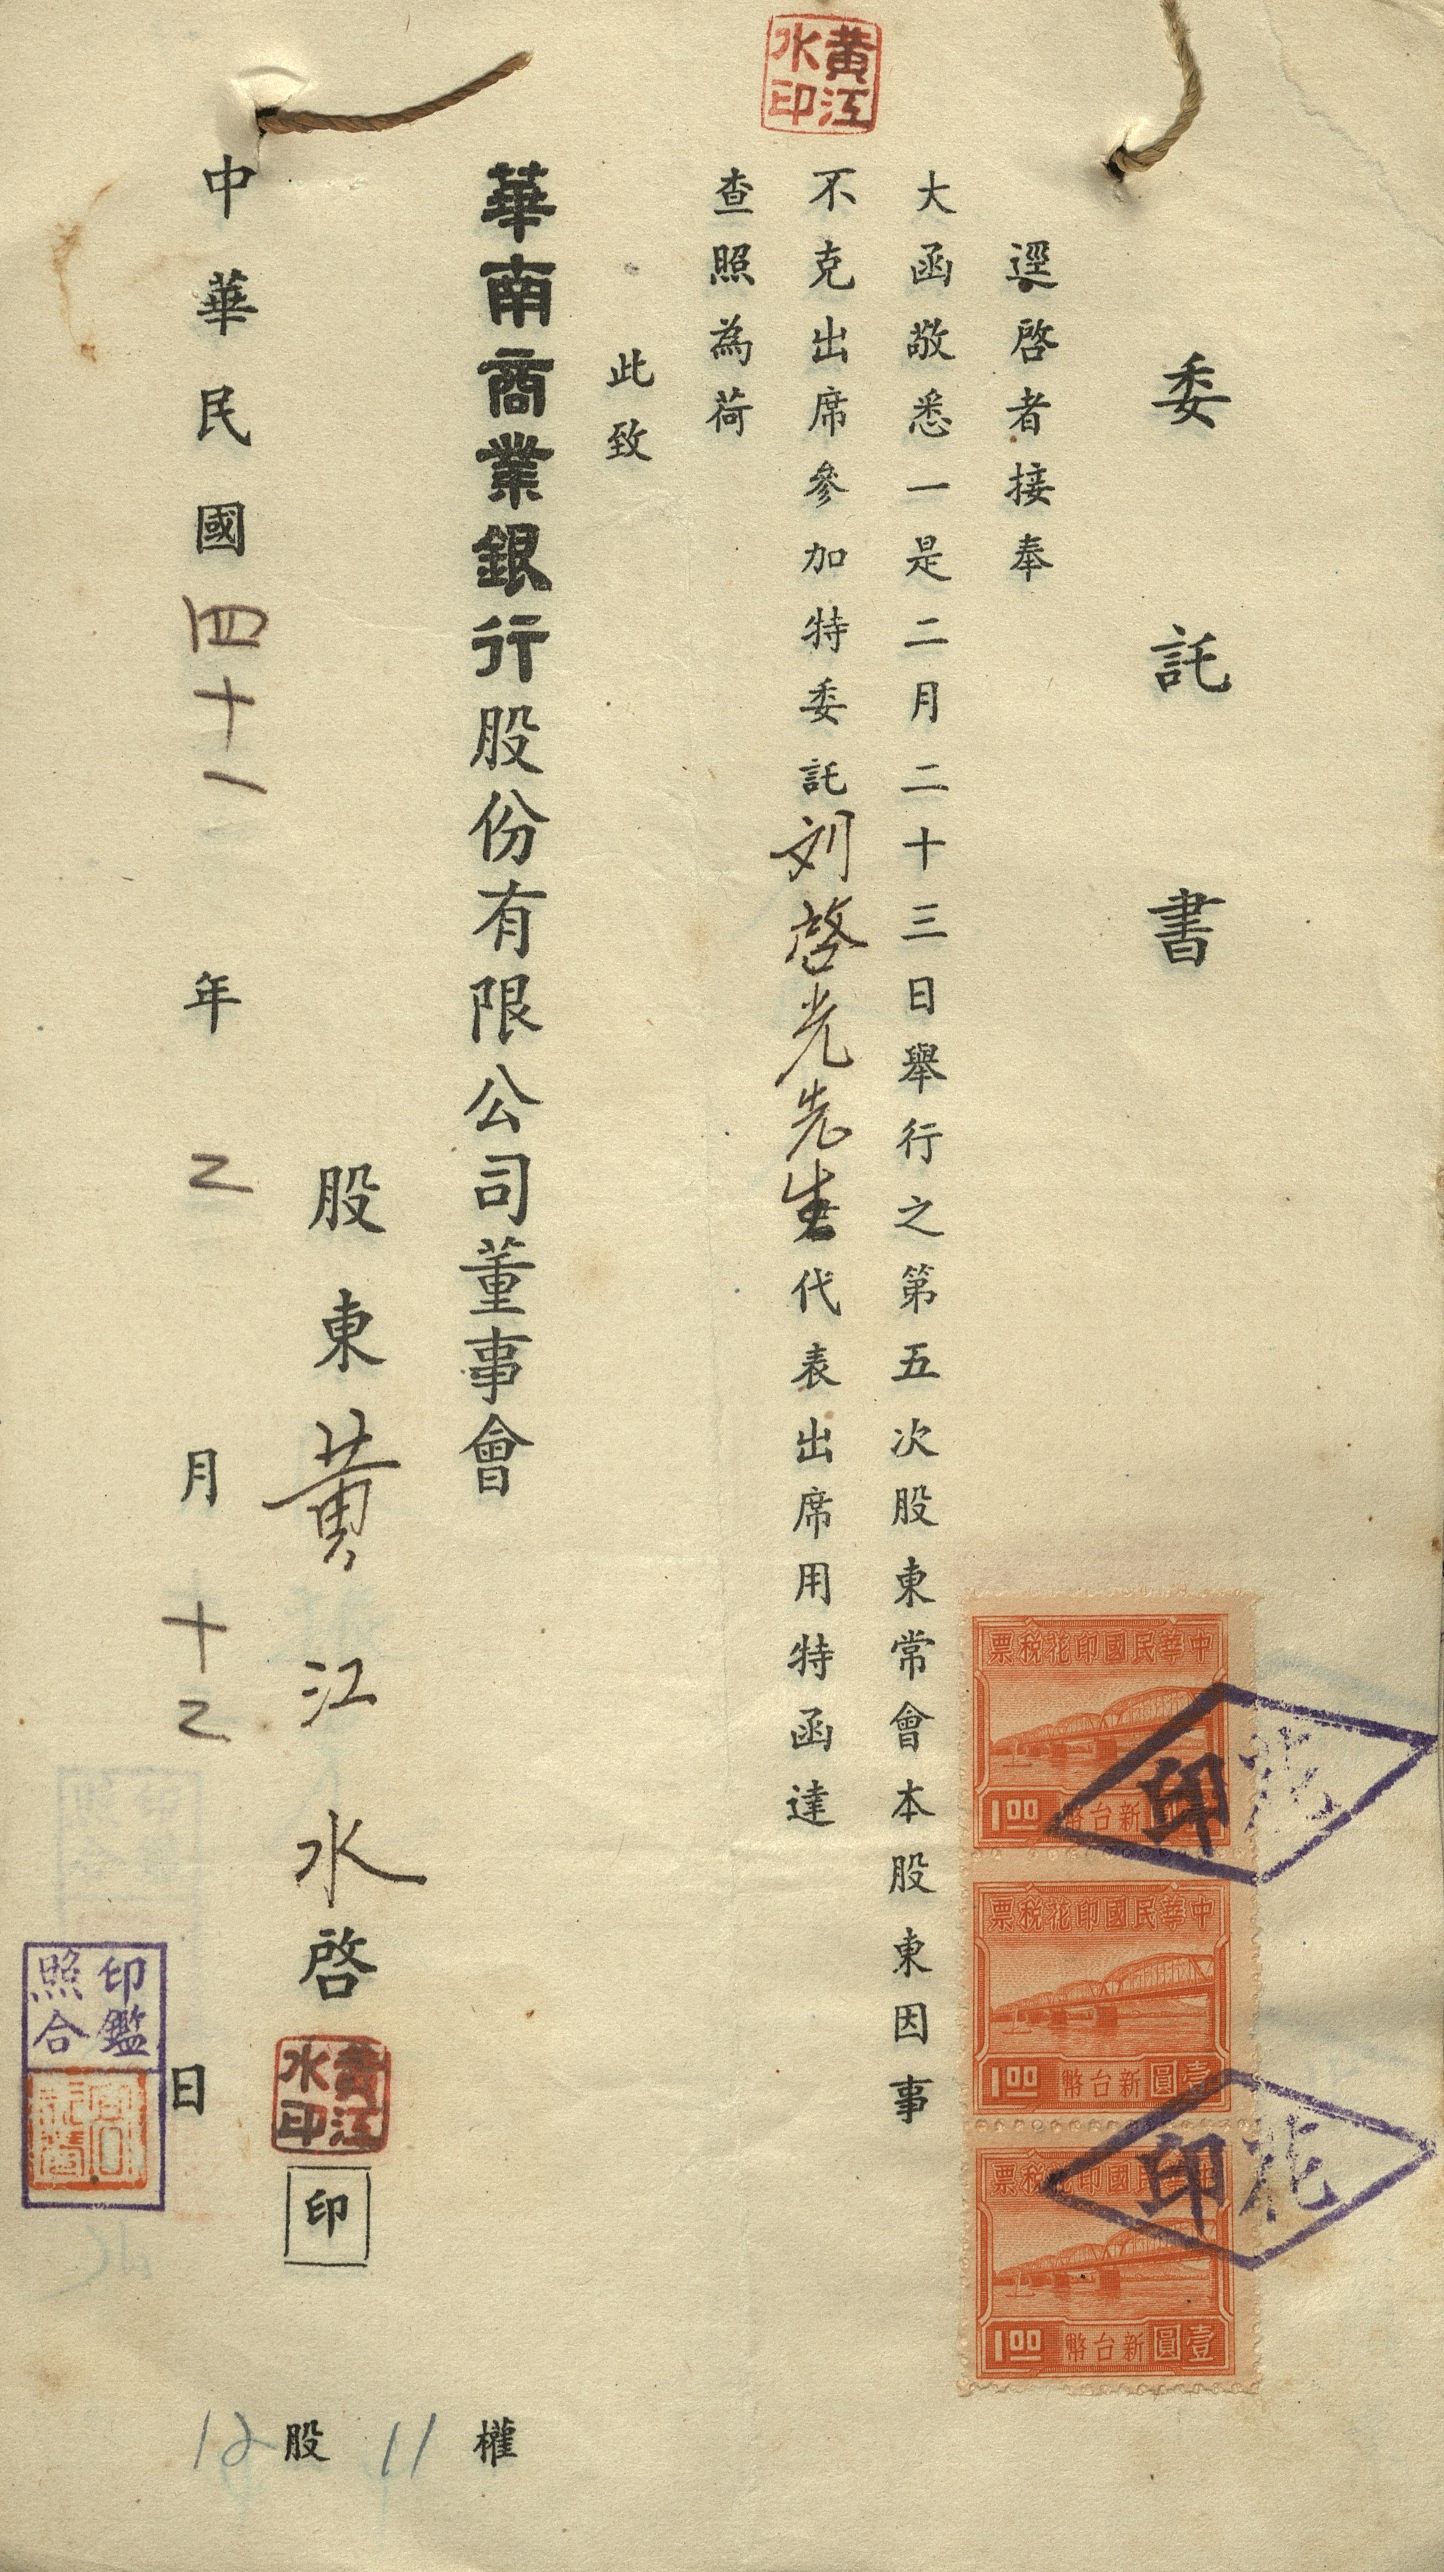 委託書
逕啓者接奉
大函敬悉一是二月二十三日舉行之第五次股東常會本股東因事
不克出席參加特委託刘啓光先生代表出席用特函達
查照為荷
此致
華南商業銀行股份有限公司董事會
股東黃江水啓
印
中華民國四十一年二月十二日
12股11權
黃江水印
黃江水印
印鑑照合
中華民國印花稅票
1.00
新台幣
中華民國印花稅票
1.00
新台幣壹圓
中華民國印花稅票
1.00
新台幣壹圓
印花
印花